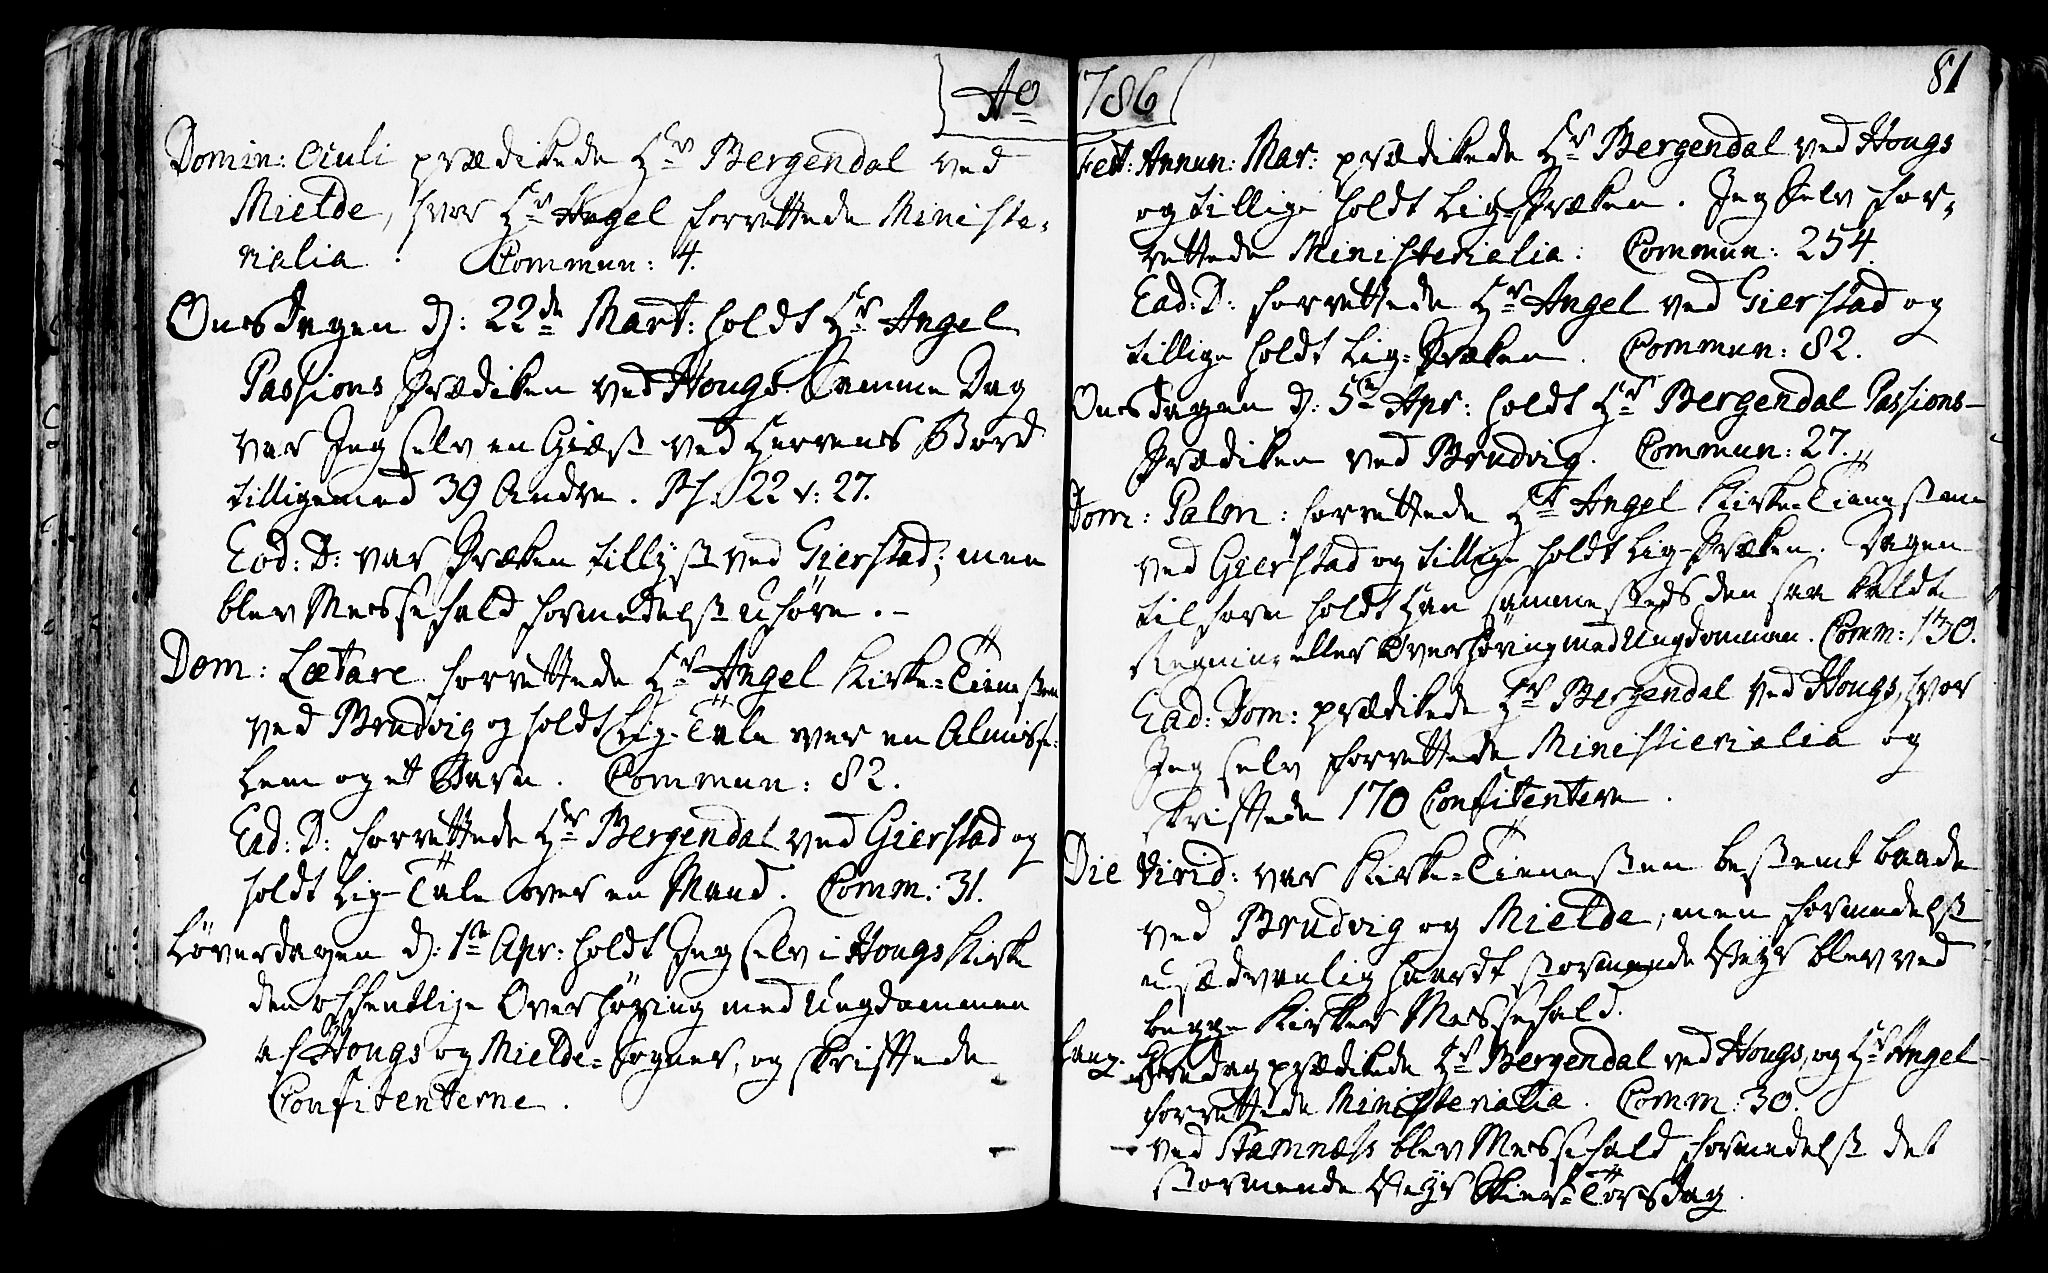 Ao 1786
81
Domin: Oculi prædikede Hr Bergendal ved
Mielde, hvor Hr Angel forrettede Ministe,
rialia. Commun: 4.
Onsdagen d: 22de Mart: holdt Hr Angel
Passions Prædiken ved Hougs. Samme Dag
var Jeg selv en Giæst ved Herrens Bord
tilligemed 39 Andre. Ps. 22 v: 27.
Eod: D: var Præken tillyst ved Gierstad; men
blev Messefald formedelst Uføre. -
Dom: Lætare forrettede Hr Angel Kirke-Tienesten
ved Brudvig og holdt Lig-Tale over en Almisse-
lem og et Barn. Commun: 82.
Ead: D: forrettede Hr Bergendal ved Gierstad og
holdt Lig-Tale over en Mand. Comm: 31.
Løverdagen d: 1te Apr: holdt Jeg selv i Hougs Kirke
den offentlige Overhøring med Ungdommen
af Hougs og Mielde-Sogner, og skriftede
Confitenterne.
Fest: Annun: Mar: prædikede Hr Bergendal ved Hougs
og tillige holdt Lig-Præken. Jeg selv for,
rettede Ministerialia: Commun: 254.
Ead: D: forrettede Hr Angel ved Gierstad og
tillige holdt Lig-Præken. Commun: 82.
Onsdagen d: 5te Apr: holdt Hr Bergendal Passions-
Prædiken ved Brudvig. Commun: 27.
Dom: Palm: forrettede Hr Angel Kirke-Tienesten
ved Gierstad og tillige holdt Lig-Præken. Dagen
tilforn holdt han sammesteds den saa kaldte
Stegning eller Overhøring med Ungdommen. Comm: 130.
Ead: Dom: prædikede Hr Bergendal ved Hougs, hvor
Jeg selv forrettede Ministerialia og
skriftede 170 Confitentere.
Die Virid: var Kirke-Tienesten bestemt baade
ved Brudvig og Mielde, men formedelst
usædvanlig haardt stormende Veyr blev ved
begge Kirker Messefald.
Lang-Fredag prædikede Hr Bergendal ved Hougs, og Hr Angel
forrettede Ministerialia. Comm: 30.
- ved Stamnæss blev Messefald formedelst det
stormende Veyr Skier-Torsdag.